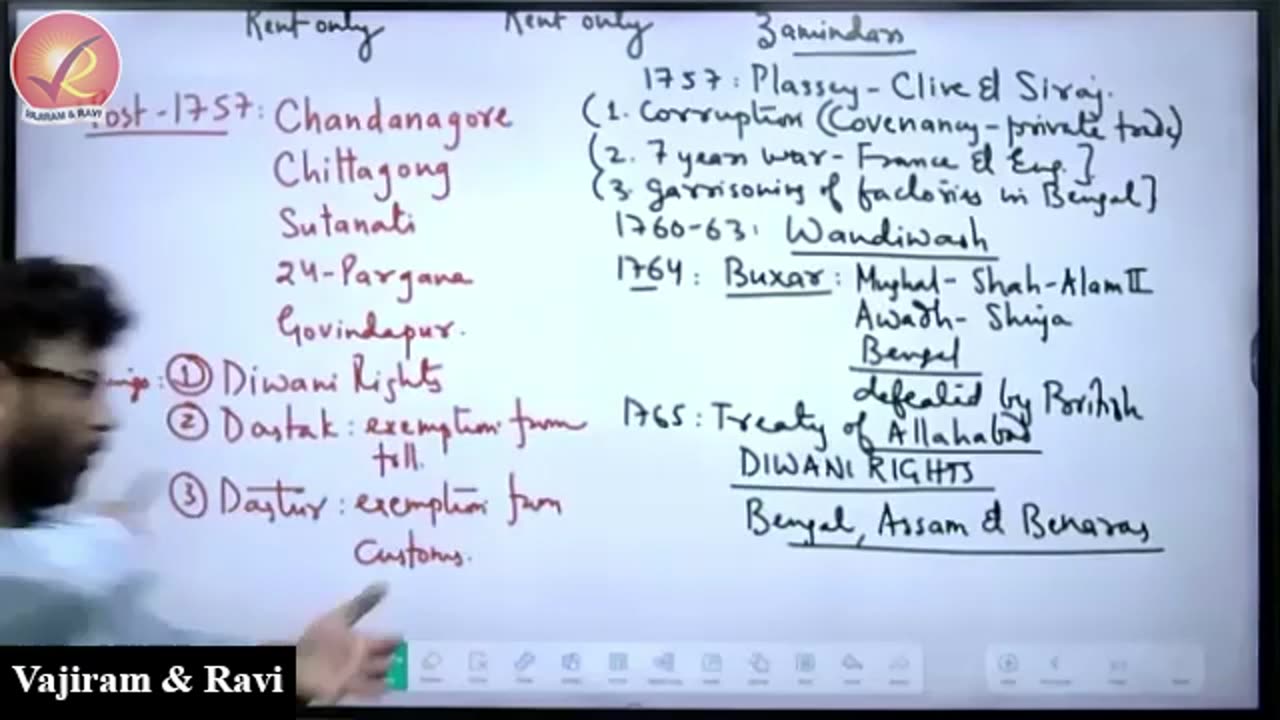 Rent only Rent only Zamindars
VAJIRAM & RAVI
Post-1757: Chandanagore
Chittagong
Sutanati
24-Pargana
Govindapur.
① Diwani Rights
② Dastak: exemption from
toll.
③ Dastur: exemption from
Customs.
1757: Plassey - Clive & Siraj.
(1. Corruption (Covenancy - private trade)
(2. 7 years war - France & Eng.]
(3. garrisoning of factories in Bengal]
1760-63: Wandiwash
1764: Buxar: Mughal - Shah-Alam II
Awadh - Shuja
Bengal
defeated by British
1765: Treaty of Allahabad
DIWANI RIGHTS
Bengal, Assam & Benaras
Vajiram & Ravi